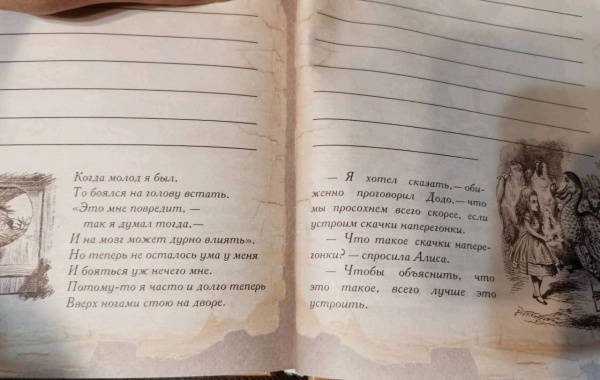 Когда молод я был,
То боялся на голову встать.
«Это мне повредит, —
так я думал тогда,—
И на мозг может дурно влиять».
Но теперь не осталось ума у меня
И бояться уж нечего мне.
Потому-то я часто и долго теперь
Вверх ногами стою на дворе.
— Я хотел сказать,—оби-
женно проговорил Додо,—что
мы просохнем всего скорее, если
устроим скачки наперегонки.
— Что такое скачки напере-
гонки? — спросила Алиса.
— Чтобы объяснить, что
это такое, всего лучше это
устроить.